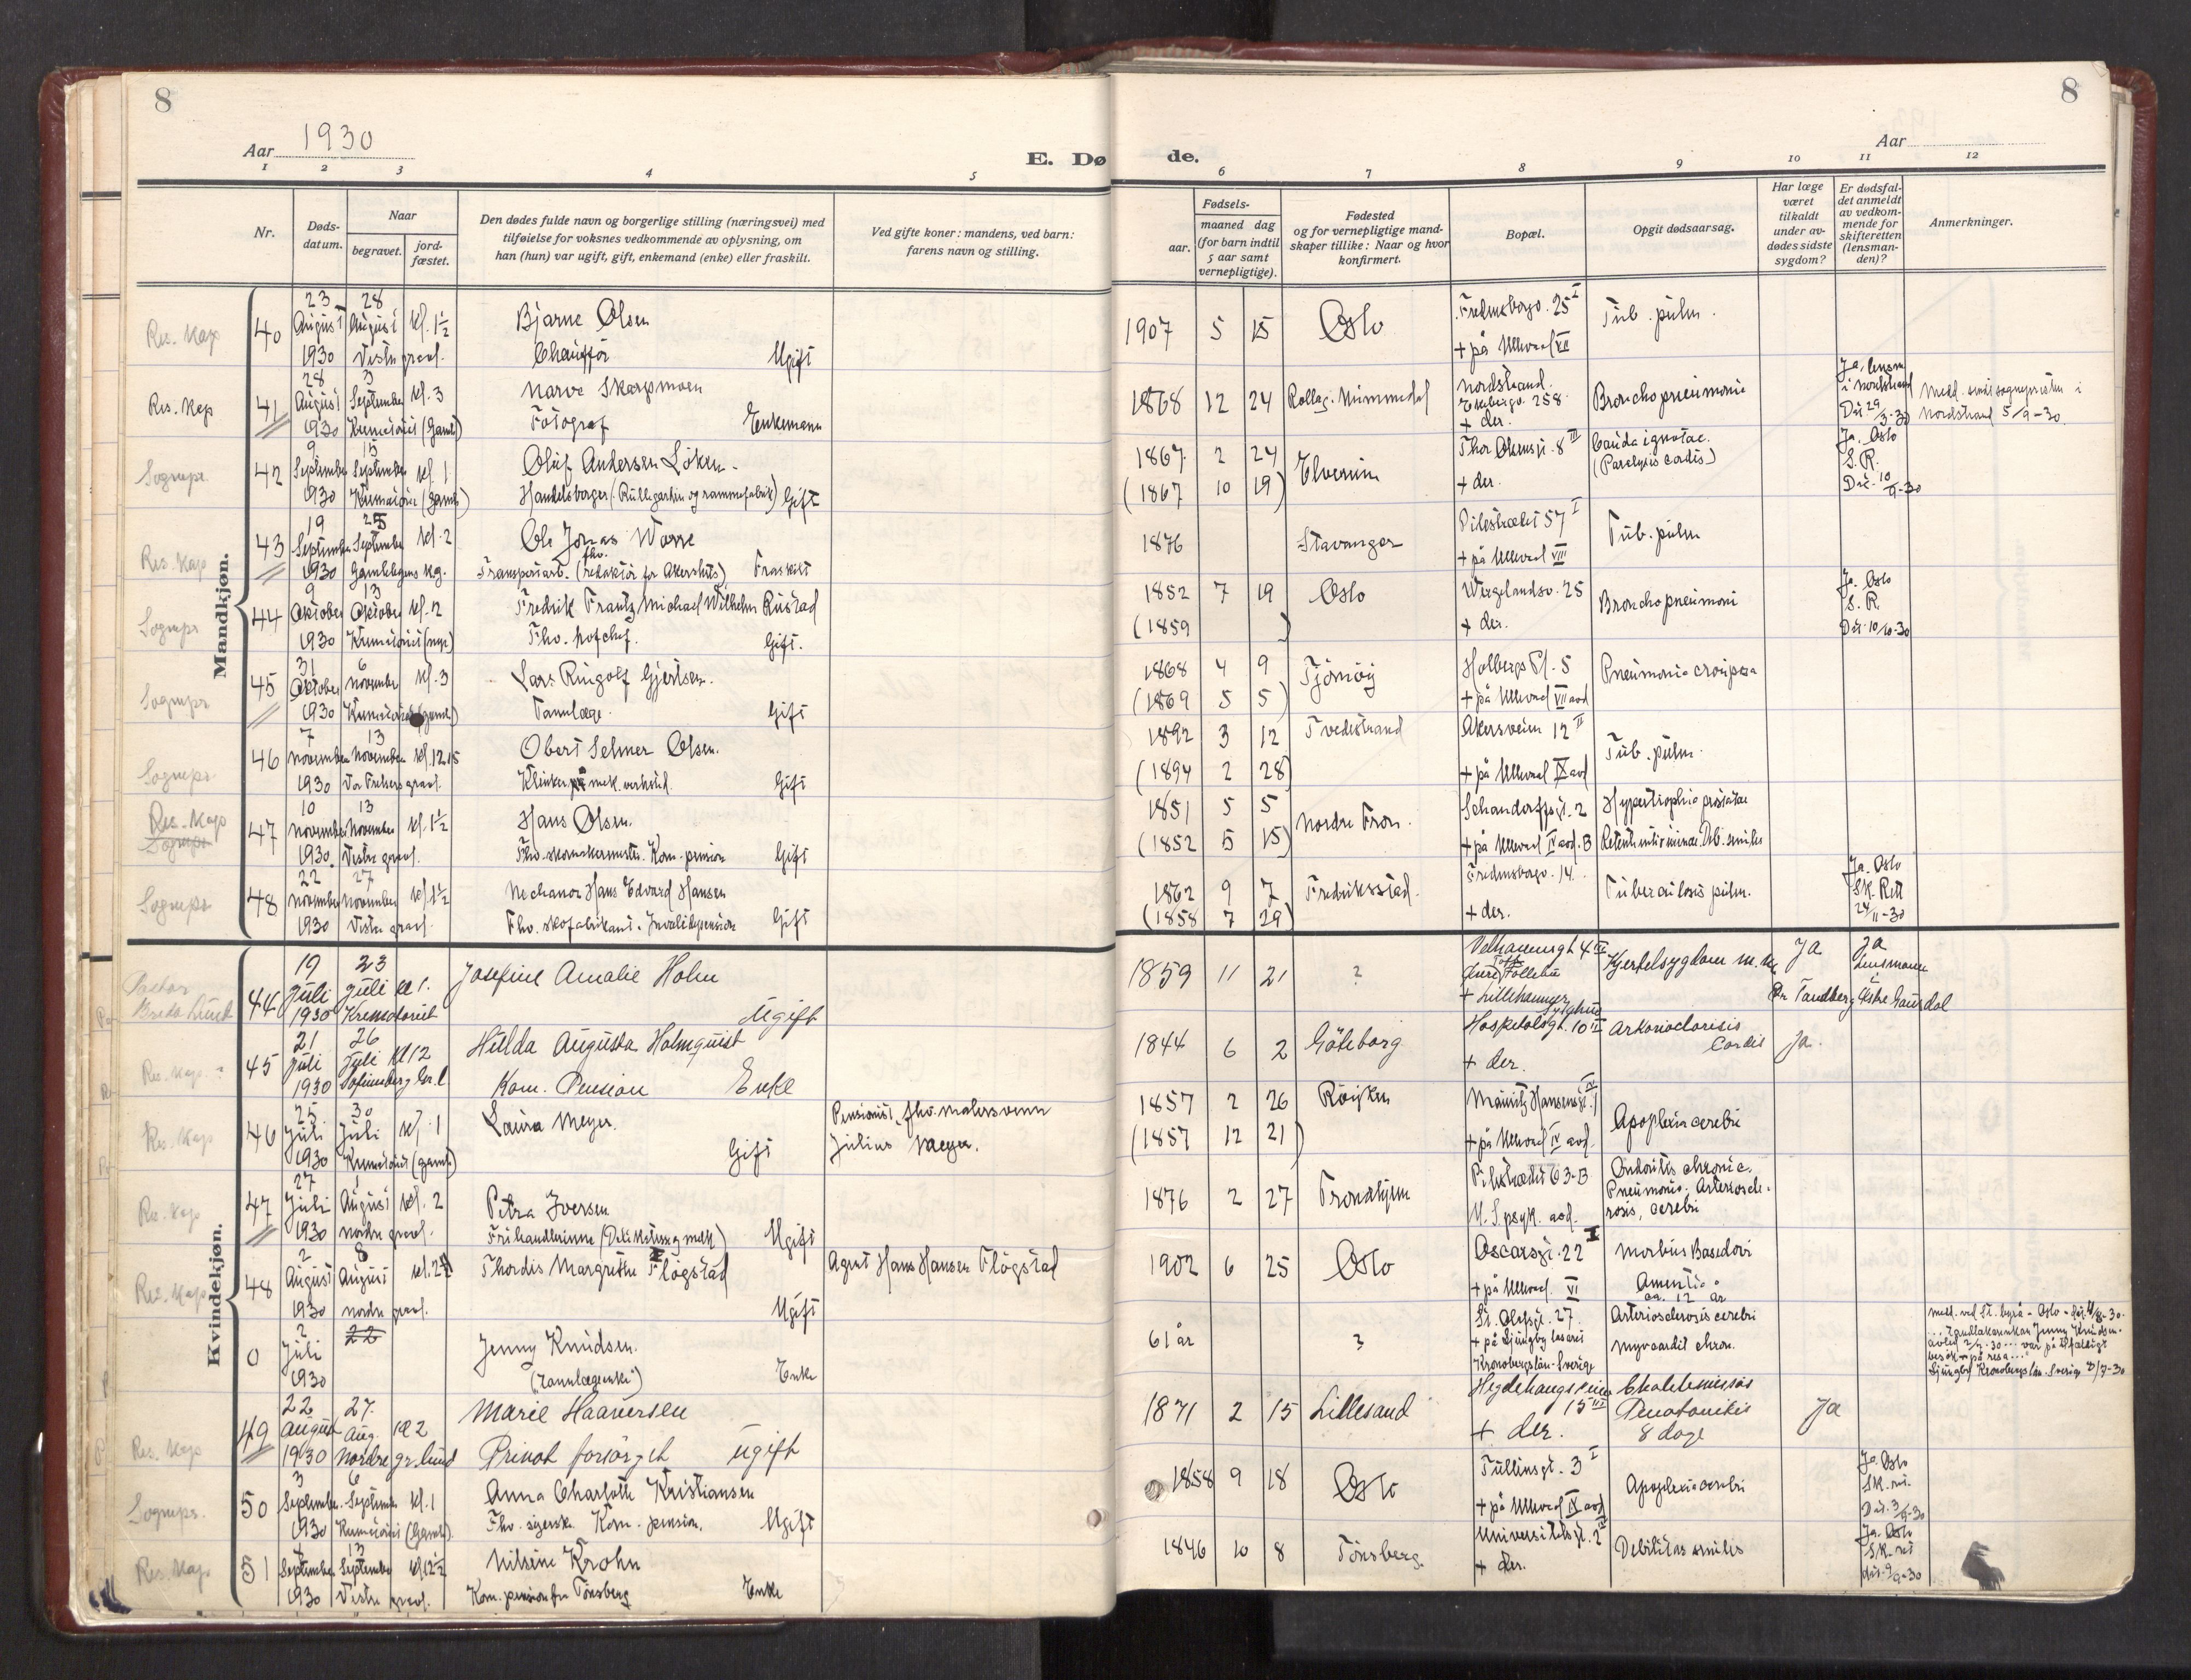 8
8
Aar 1930
Aar
E. Dø
de.
1 2 3 4 5
6 7 8 9 10 11 12
Nr.
Døds-
datum.
Naar
begravet.
jord-
fæstet.
Den dødes fulde navn og borgerlige stilling (næringsvei) med
tilføielse for voksnes vedkommende av oplysning, om
han (hun) var ugift, gift, enkemand (enke) eller fraskilt.
Ved gifte koner: mandens, ved barn:
farens navn og stilling.
Fødsels-
aar.
maaned dag
(for barn indtil
5 aar samt
vernepligtige).
Fødested
og for vernepligtige mand-
skaper tillike: Naar og hvor
konfirmert.
Bopæl.
Opgit dødsaarsag.
Har læge
været
tilkaldt
under av-
dødes sidste
sygdom?
Er dødsfal-
det anmeldt
av vedkom-
mende for
skifteretten
(lensman-
den)?
Anmerkninger.
Mandkjøn.
Res. Kap
40
23 August 1930
28 August
kl. 1½
Vestre gravl.
Bjarne Olsen
Chauffør. Ugift
1907 5 15
Oslo
Fredensborgv. 25 I
+ på Ullevaal VII
Tub. pulm.
Res. Kap
41
28 August 1930
3 September
kl. 3
Krematoriet (gamle)
Narve Skarpmoen
Fotograf Enkemann
1868 12 24
Rollag. Nummedal
Nordstrand.
Ekebergv. 258
+ der.
Bronchopneumonie
Ja, lensm.
i Nordstrand
Nordstrand 5/9-30
Sognepr.
42
9 September 1930
15 September
kl. 1
Krematoriet (gamle)
Oluf Andersen Löken
Handelsborger (Rullegardin og rammefabrik) Gift
1867 2 24
(1867 10 19)
Elverum
Thor Olsensgt. 8 III
+ der.
Causa ignotae.
(Paralysis cordis)
Ja. Oslo
S. R.
Dat. 10/9-30
Res. Kap
43
19 September 1930
25 September
kl. 2
Gamlebyens kg.
Ole Jonas Warre
fhv.
Transportarb. (redaktör for Akershus) Fraskilt
1876
Stavanger
Pilestrædet 57 I
+ på Ullevaal VIII
Tub. pulm
Sognepr
44
9 Oktober 1930
13 Oktober
kl. 12
Krematoriet (nye)
Fredrik Frantz Michael Wilhelm Rustad
Fhv. hofchef. Gift.
1852 7 19
(1859 )
Oslo
Wergelandsv. 25
+ der.
Bronchopneumoni
Ja. Oslo
S. R.
Dat. 10/10-30
Sognepr
45
31 Oktober 1930
6 November
kl. 3
Krematoriet (gamle)
Lars Ringolf Gjertsen.
Tannlæge. Gift
1868 4 9
(1869 5 5)
Tjömöy
Holbergs Pl. 5
+ på Ullevaal VII avd
Pneumonia crouposa
Sognepr
46
7 November 1930
13 November
kl. 12.15
Vor Frelsers gravl.
Obert Selmer Olsen.
Klinker på mek. verksted. Gift
1892 3 12
(1894 2 28)
Tvedestrand
Akersveien 12 II
+ på Ullevaal IX avd
Tub. pulm.
Res. Kap
Sognepr
47
10 November 1930.
13 November
kl. 1½
Vestre gravl.
Hans Olsen.
Fhv. skomakermester. Kom. pensjon Gift
1851 5 5
(1852 5 15)
Nordre Fron.
Schandorffsgt. 2
+ på Ullevaal IV avd. B
Hypertrophia prostatae
Sognepr
48
22 November 1930
27 November
kl. 1½
Vestre gravl.
Nechanor Hans Edvard Hansen
Fhv. skofabrikant. Invalidepension Gift
1862 9 7
(1858 7 29)
Fredriksstad.
Fredensborgv. 14.
+ der.
Tuberculosis pulm.
Ja. Oslo
Sk. Rett
24/11-30
Kvindekjøn.
44
19 Juli 1930
23 Juli kl 1.
Krematoriet
Josefine Amalie Holm
Ugift
1859 11 21
?
Welhavensgt 4 III
+ Lillehammer
Sykehus
Hjertesygdom
Ja
Dr Tandberg
Ja
Lensmann
i
Østre Gausdal
Res. Kap.
45
21 Juli 1930
26 Juli kl 12
Sofienberg Gr.l.
Hulda Augusta Holmquist
Kom. Pension Enke
1844 6 2
Göteborg
Hospitalsgt. 10 II
+ der.
Cordis
Ja.
Res. Kap
46
25 Juli 1930
30 Juli
kl. 1
Krematoriet (gamle)
Laura Meyer.
Gift
Pensionist, fhv. malersvenn
Julius Meyer.
1857 2 26
(1857 12 21)
Röyken
Mauritz Hansensgt. 1 IV
+ på Ullevaal IV avd.
Apoplexia cerebri
Res. Kap
47
27 Juli 1930
1 August
kl. 2
Nordre gravl.
Petra Iversen
Frihandlerinne (Delikatesse og melk) Ugift
1876 2 27
Trondhjem
Pilestrædet 63 B
U. S. psyk. avd.
Pneumonie. Arterioscle-
rosis, cerebri
Res. Kap
48
2 August 1930
8 August
kl. 2½
Nordre gravl.
Thordis Margrethe Flögstad
Ugift
Agent Hans Hansen Flögstad
1902 6 25
Oslo
Oscarsgt. 22 I
+ på Ullevaal. VI
Morbus Basedovi
Amentia
ca. 12 år
0
2 Juli 1930
22
Jenny Knudsen.
(Tannlægeenke) Enke
61 år
?
St. Olafsgt. 27
+ på Ljungby lasaret
Kronobergslän-Sverige
Arteriosclerosis cerebri
Myocardit chron.
Ljungby Kronobergs län. Sverige 2/7-30
Res. Kap
49
22 August 1930
27. Aug. kl 2
Nordre gr.lund
Marie Haaversen
Privat forsörget Ugift
1871 2 15
Lillesand
Hegdehaugsveien
15 III
+ der.
8 dage
Ja
Sognepr.
50
3 September 1930
6 September
kl. 1
Krematoriet (Gamle)
Anna Charlotte Kristiansen
Fhv. sigersk. Kom. pension. Ugift
1858 9 18
Oslo
Tullinsgt. 3 I
+ på Ullevaal IX avd
Apoplexia cerebri
Ja. Oslo
Sk. ret.
Dat. 3/9-30
Res. Kap
51
September 1930
13 September
kl 12½
Vestre gravl.
Nilsine Krohn
Kom. pension fra Tönsberg Enke
1846 10 8
Tönsberg
Universitetsgt. 2
+ der.
Debilitas senilis
Ja. Oslo
Sk. ret
dat. 9/9-30